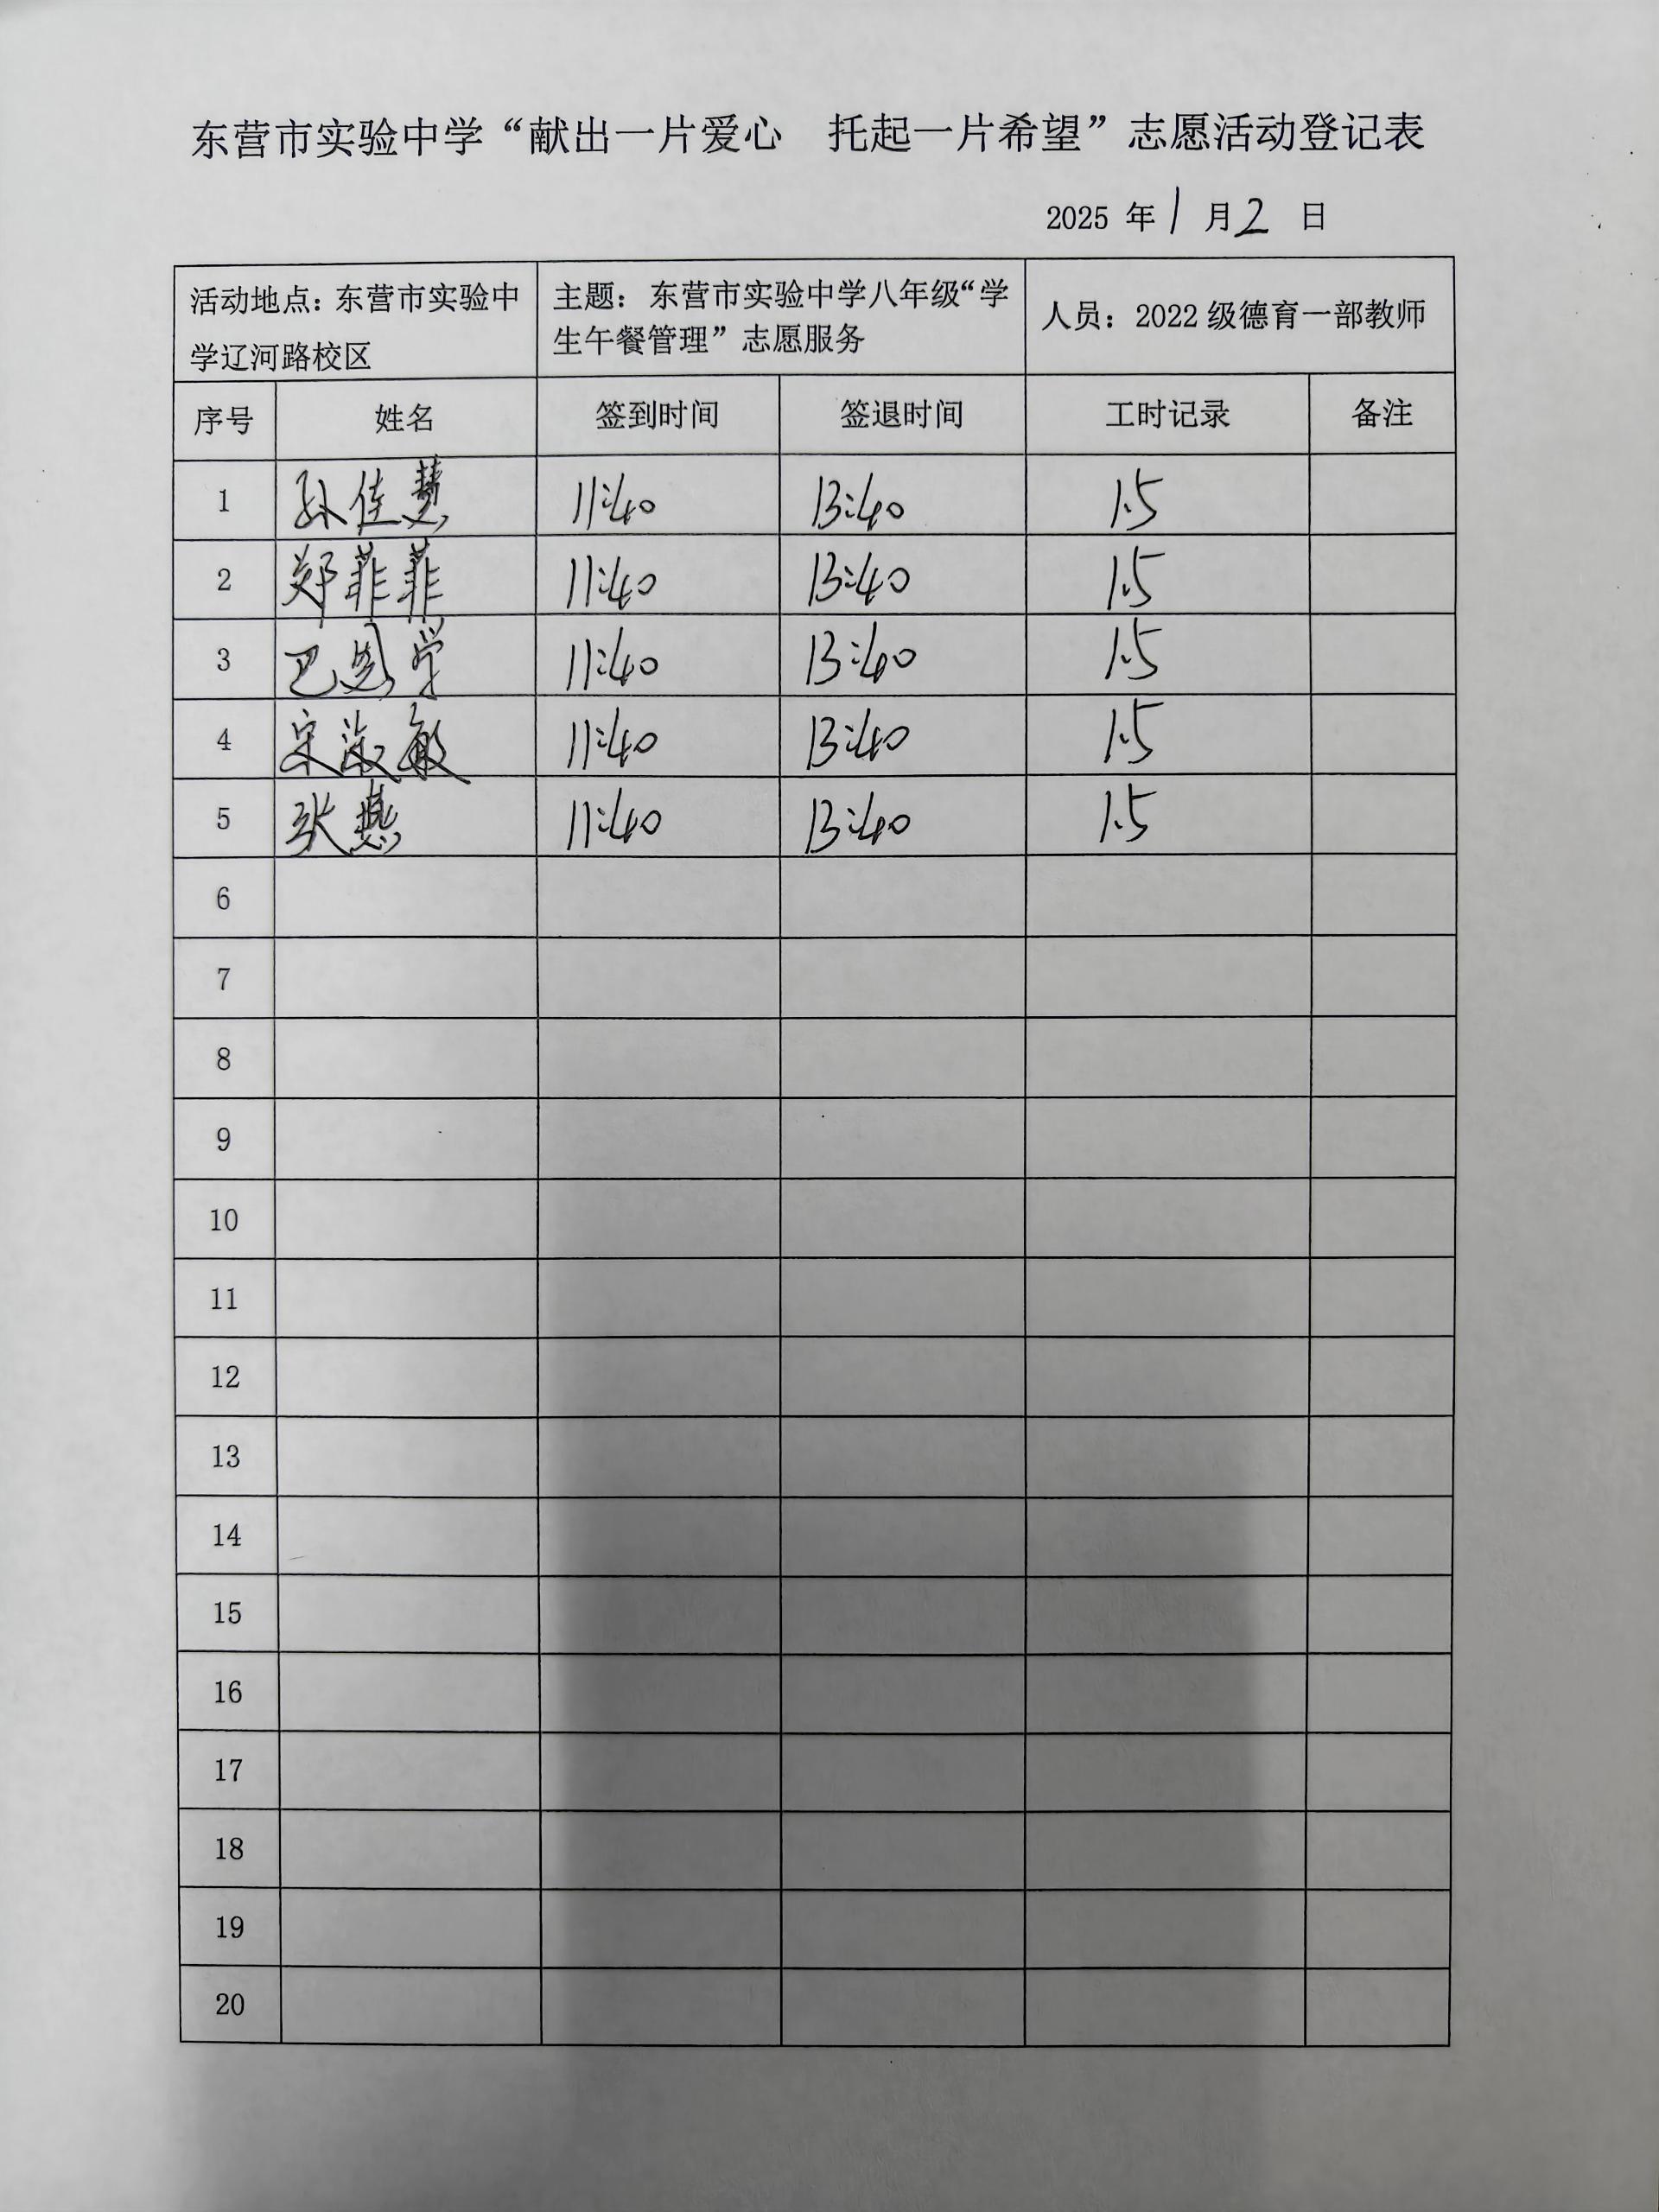 东营市实验中学“献出一片爱心 托起一片希望”志愿活动登记表
2025 年 1 月 2 日
活动地点：东营市实验中学辽河路校区 主题：东营市实验中学八年级“学生午餐管理”志愿服务 人员：2022 级德育一部教师
序号 姓名 签到时间 签退时间 工时记录 备注
1 孙佳慧 11:40 13:40 1.5
2 郑菲菲 11:40 13:40 1.5
3 巴 学 11:40 13:40 1.5
4 宋淑敏 11:40 13:40 1.5
5 张燕 11:40 13:40 1.5
6
7
8
9
10
11
12
13
14
15
16
17
18
19
20